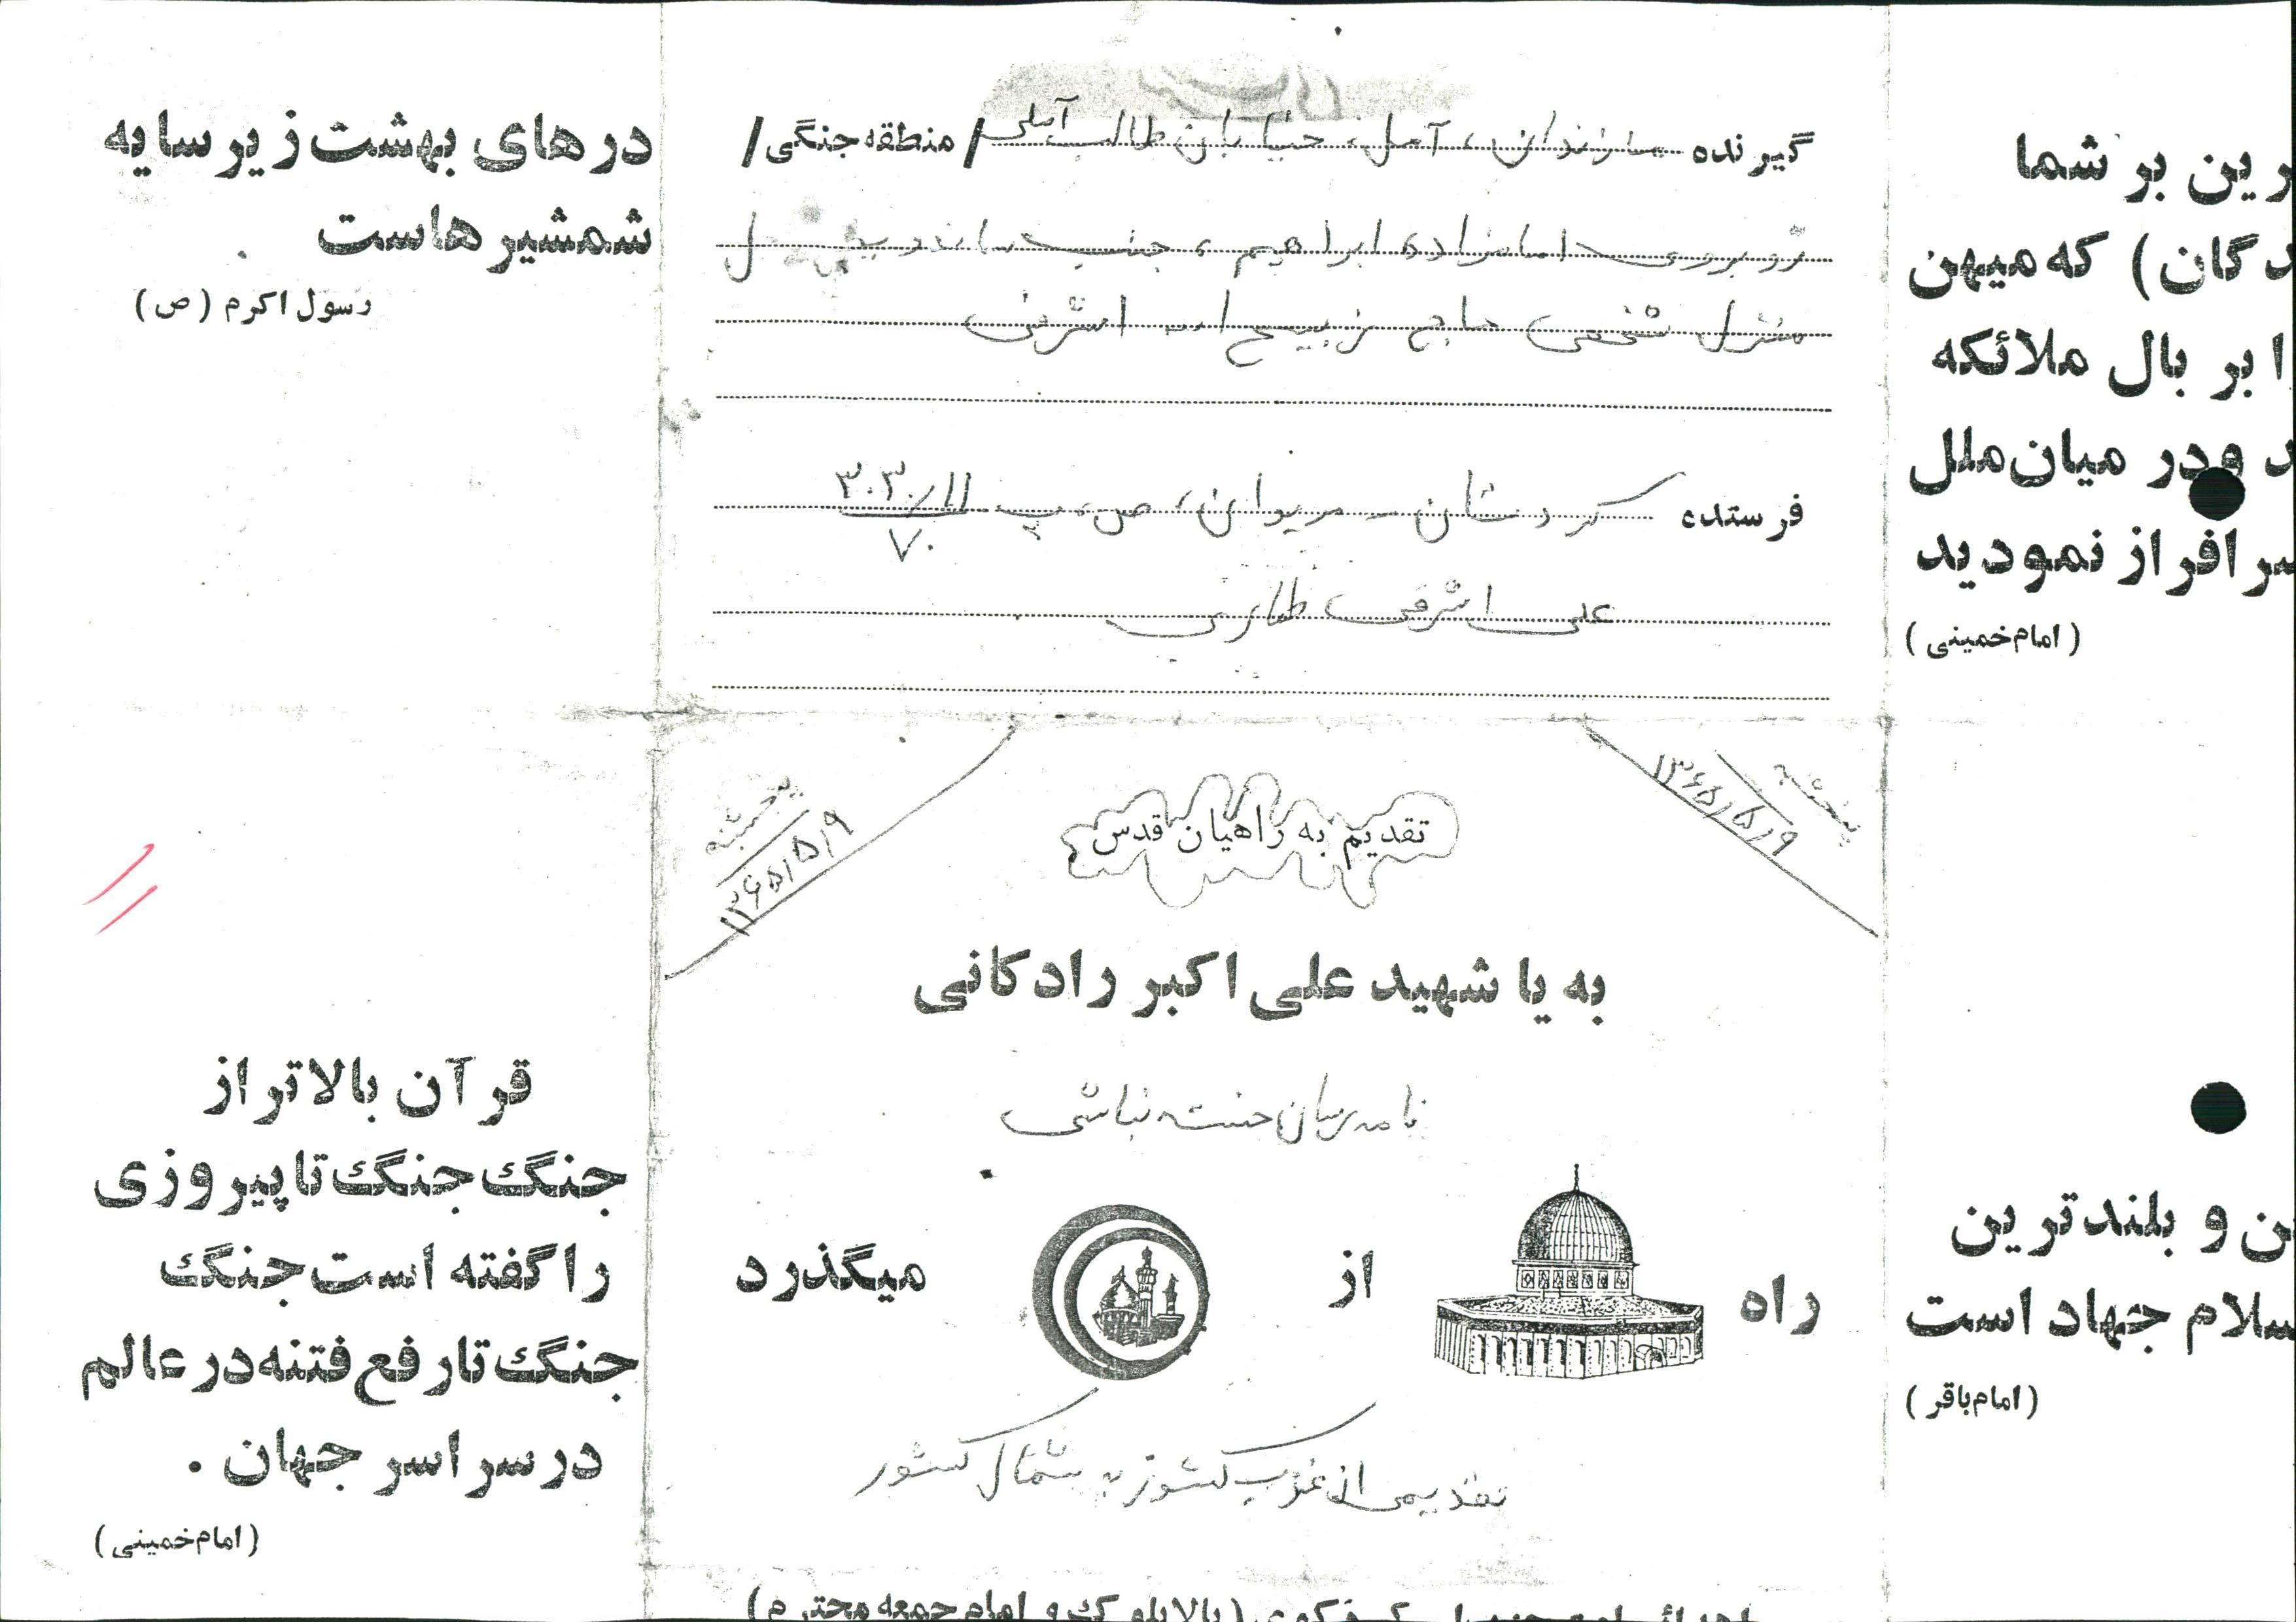 رین بر شما
دگان) که میهن
ا بر بال ملائکه
د ودر میان ملل
سرافراز نمودید
(امام خمینی)
ن و بلندترین
سلام جهاد است
(امام باقر)
گیرنده مازندران، آمل، خیابان طالب آملی / منطقه جنگی /
روبروی امامزاده ابراهیم، جنب
منزل شخصی حاج ذبیح اله اشرفی
فرستنده کردستان - مریوان، ص، پ ۳۰۳۰/۱۱
۷۰
علی اشرفی طاری
پنجشنبه
۱۳۶۵/۵/۹
پنجشنبه
۱۳۶۵/۵/۹
تقدیم به راهیان قدس
به یا شهید علی اکبر رادکانی
نامه رسان خسته نباشی
راه از میگذرد
تقدیمی از غرب کشور به شمال کشور
درهای بهشت زیر سایه
شمشیرهاست
رسول اکرم (ص)
قرآن بالاتر از
جنگ جنگ تا پیروزی
را گفته است جنگ
جنگ تا رفع فتنه در عالم
در سراسر جهان .
(امام خمینی)